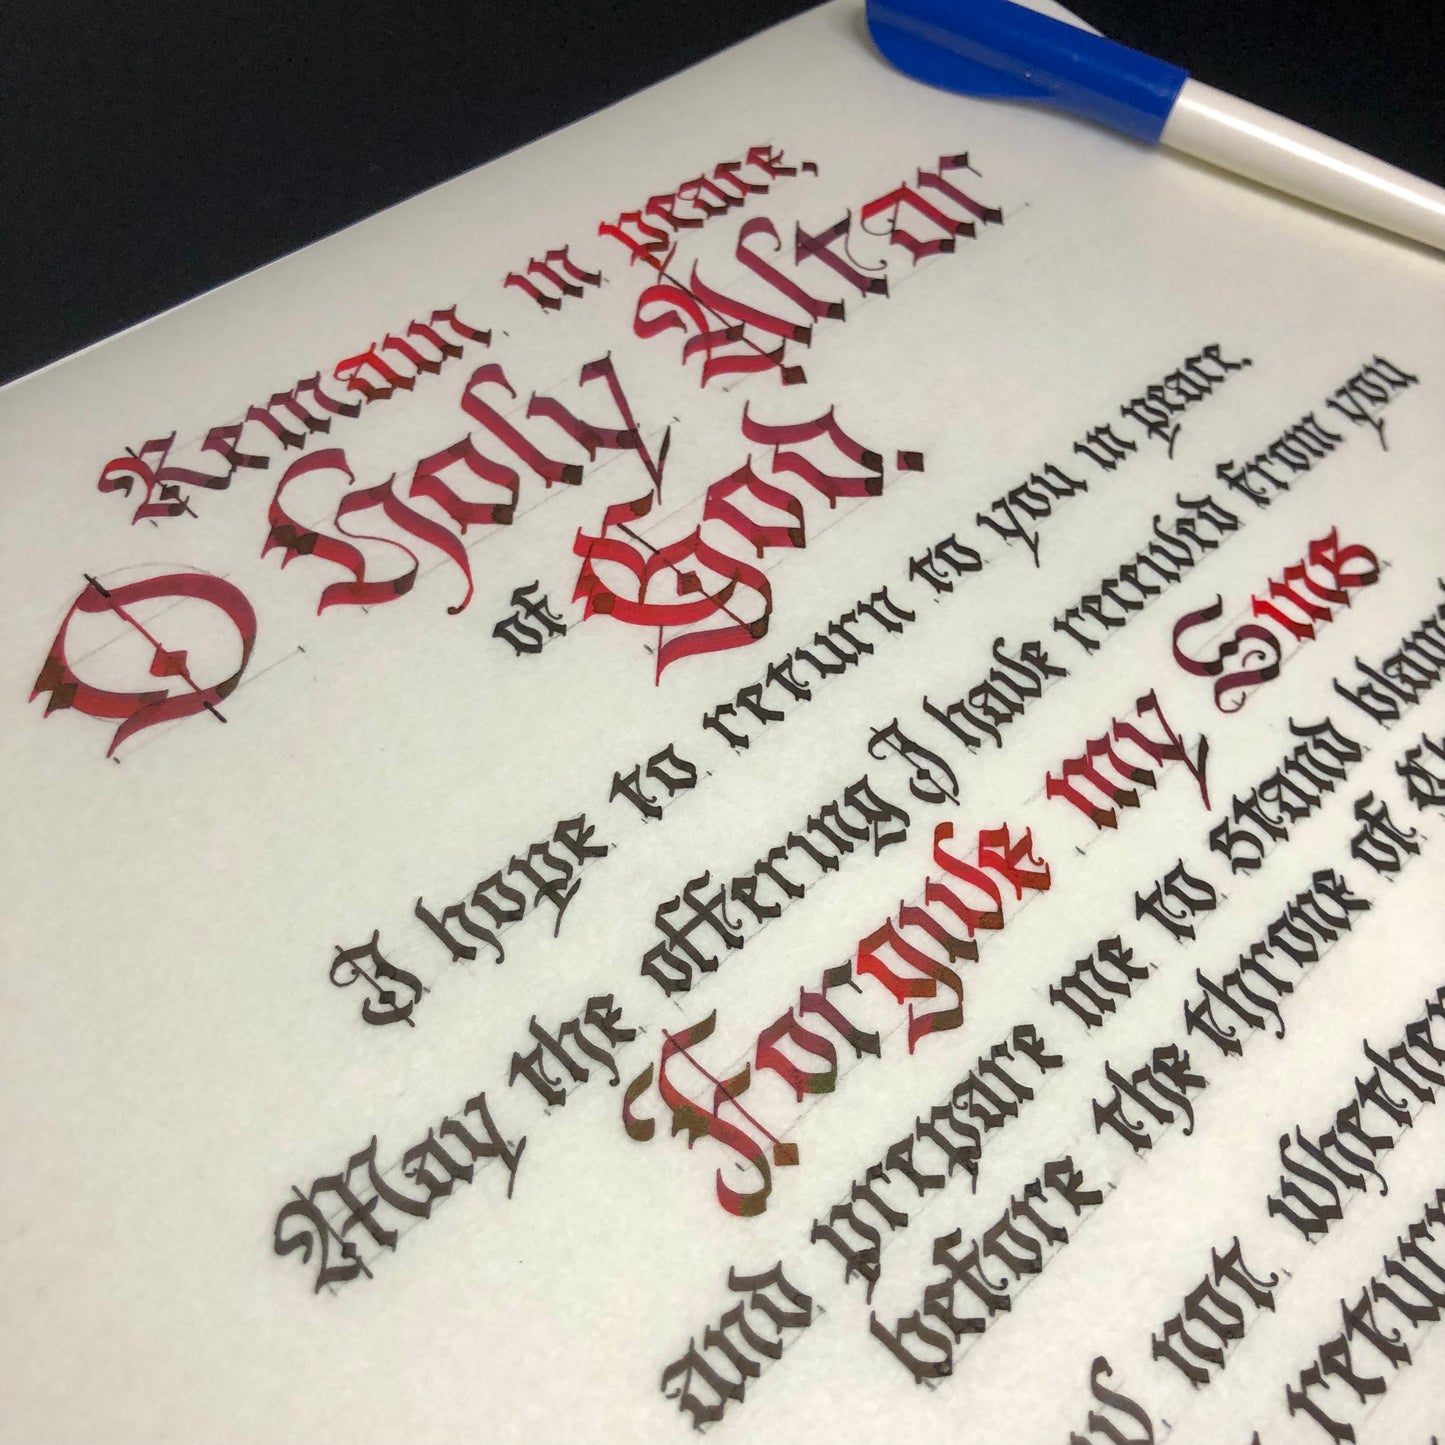 Remain in peace,
O Holy Altar
of God.
I hope to return to you in peace.
May the offering I have received from you
Forgive my Sins
and prepare me to stand
before the throne of
not whether
return